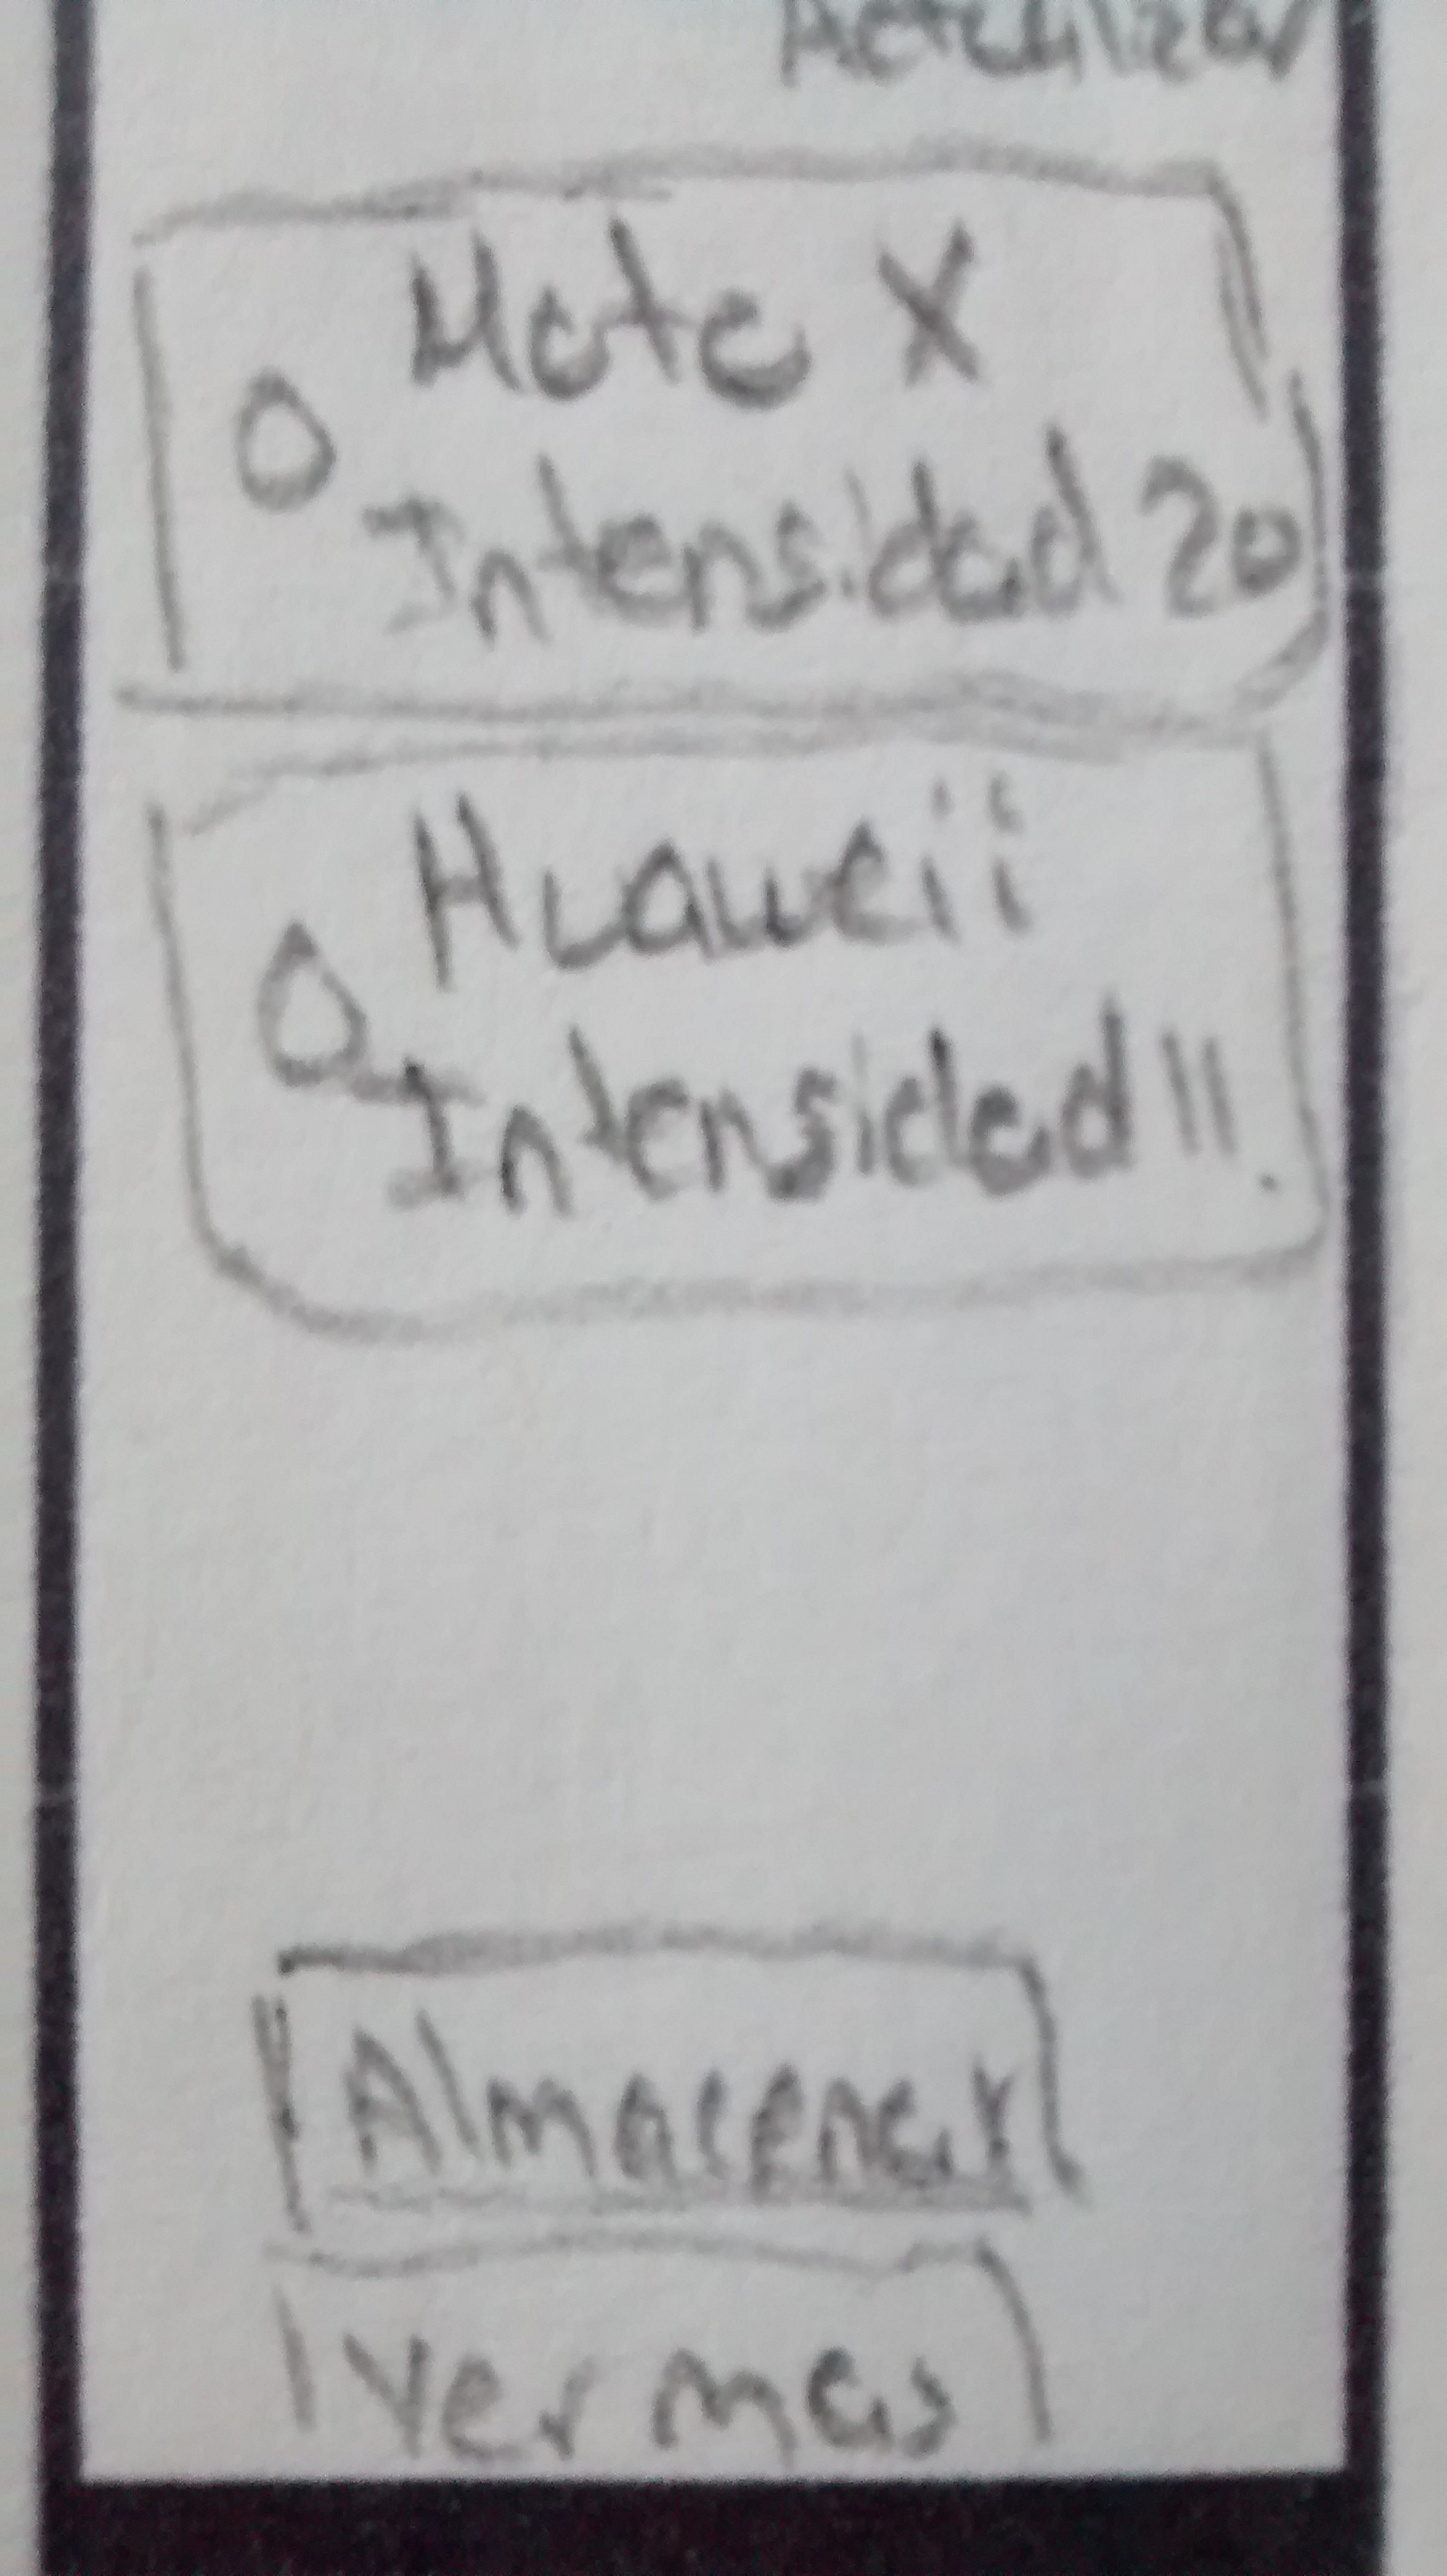 Actualizar
Mate X
Intensidad 20
Huaweii
Intensidad 11
Almacenar
Ver mas